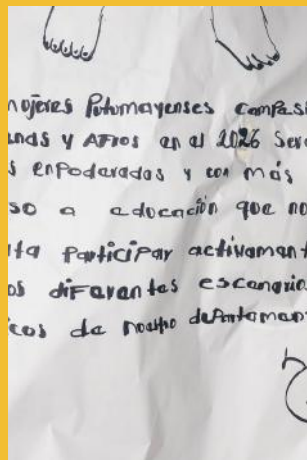 mojeres Potomayenses campesi
enas y Afros en el 2026 Sere
s enpoderadas y con más
so a edocación que no
ita participar activamant
os difarantes escenario
icos de noastro departamen